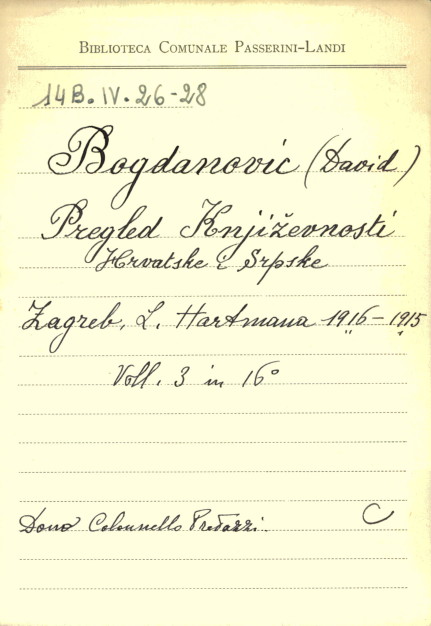 BIBLIOTECA COMUNALE PASSERINI-LANDI
14B.IV.26-28
Bogdanovic (David)
Pregled Književnosti
Hrvatske i Srpske
Zagreb, L. Hartmana 1916-1915
Voll. 3 in 16°
Dono Colonnello Predazzi.
C